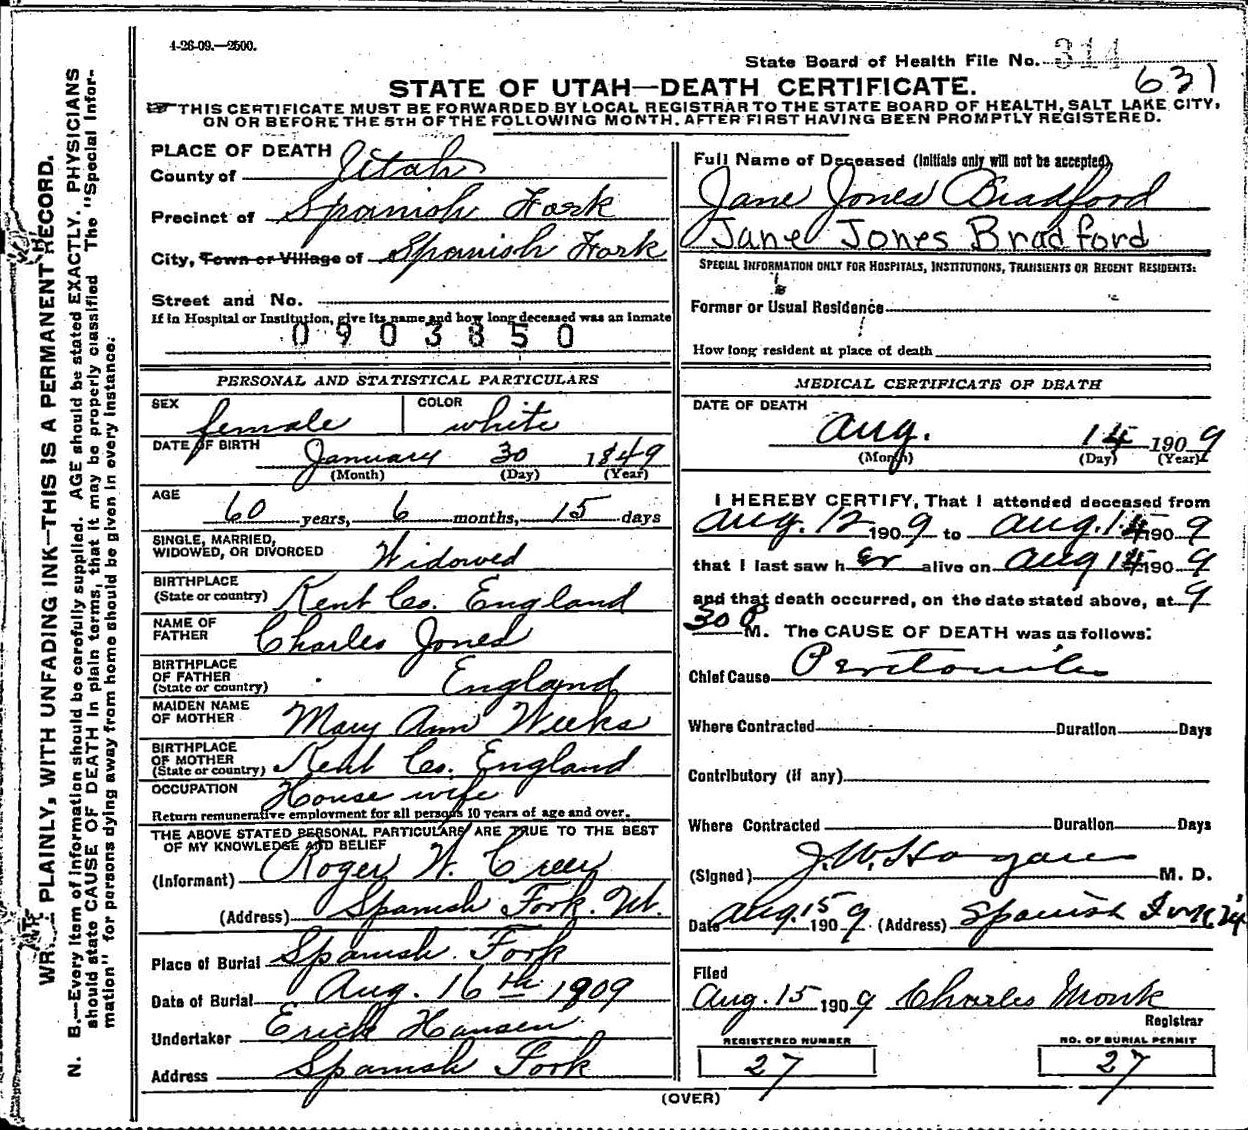 4-26-09.—2500.
State Board of Health File No. 314
631
STATE OF UTAH—DEATH CERTIFICATE.
THIS CERTIFICATE MUST BE FORWARDED BY LOCAL REGISTRAR TO THE STATE BOARD OF HEALTH, SALT LAKE CITY,
ON OR BEFORE THE 5TH OF THE FOLLOWING MONTH, AFTER FIRST HAVING BEEN PROMPTLY REGISTERED.
PLACE OF DEATH
County of Utah
Precinct of Spanish Fork
City, Town or Village of Spanish Fork
Street and No.
If in Hospital or Institution, give its name and how long deceased was an inmate
0903850
Full Name of Deceased (Initials only will not be accepted)
Jane Jones Bradford
Jane Jones Bradford
SPECIAL INFORMATION ONLY FOR HOSPITALS, INSTITUTIONS, TRANSIENTS OR RECENT RESIDENTS:
Former or Usual Residence
How long resident at place of death
PERSONAL AND STATISTICAL PARTICULARS
SEX female COLOR white
DATE OF BIRTH January 30 1849
(Month) (Day) (Year)
AGE 60 years, 6 months, 15 days
SINGLE, MARRIED,
WIDOWED, OR DIVORCED Widowed
BIRTHPLACE
(State or country) Kent Co. England
NAME OF
FATHER Charles Jones
BIRTHPLACE
OF FATHER
(State or country) England
MAIDEN NAME
OF MOTHER Mary Ann Weeks
BIRTHPLACE
OF MOTHER
(State or country) Kent Co. England
OCCUPATION House wife
Return remunerative employment for all persons 10 years of age and over.
THE ABOVE STATED PERSONAL PARTICULARS ARE TRUE TO THE BEST
OF MY KNOWLEDGE AND BELIEF
(Informant) Roger W. Creer
(Address) Spanish Fork. Ut.
Place of Burial Spanish Fork
Date of Burial Aug. 16th 1909
Undertaker Erick Hansen
Address Spanish Fork
MEDICAL CERTIFICATE OF DEATH
DATE OF DEATH
Aug. 14 1909
(Month) (Day) (Year)
I HEREBY CERTIFY, That I attended deceased from
Aug. 12 1909 to Aug. 14 1909
that I last saw her alive on Aug 14 1909
and that death occurred, on the date stated above, at 9
30 P M. The CAUSE OF DEATH was as follows:
Chief Cause Peritonitis
Where Contracted Duration Days
Contributory (if any)
Where Contracted Duration Days
(Signed) J. W. Hagan M. D.
Date Aug. 15 1909 (Address) Spanish Fork
Filed
Aug. 15 1909 Charles Monk
Registrar
REGISTERED NUMBER
27
NO. OF BURIAL PERMIT
27
(OVER)
PLAINLY, WITH UNFADING INK—THIS IS A PERMANENT RECORD.
N. B.—Every item of information should be carefully supplied. AGE should be stated EXACTLY. PHYSICIANS
should state CAUSE OF DEATH in plain terms, that it may be properly classified The "Special Infor-
mation" for persons dying away from home should be given in every instance.